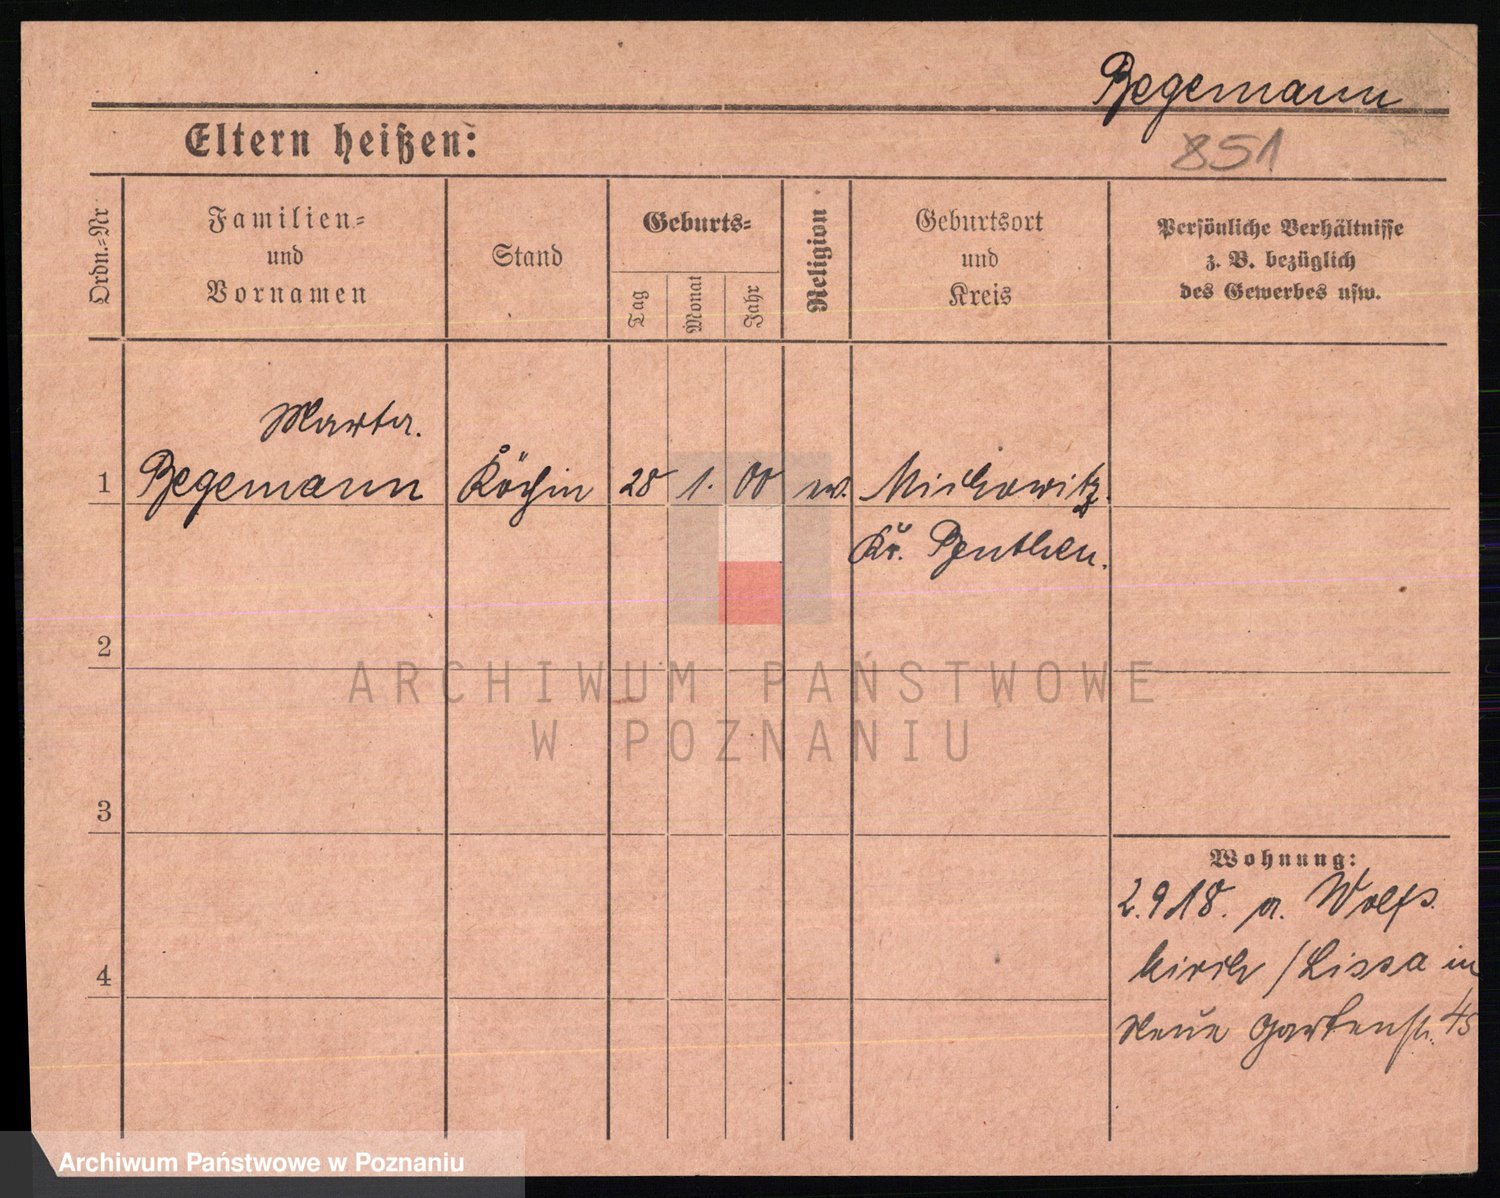 Begemann
Eltern heißen:
851
Ordn.-Nr
Familien-
und
Vornamen
Stand
Geburts-
Tag
Monat
Jahr
Religion
Geburtsort
und
Kreis
Persönliche Verhältnisse
z. B. bezüglich
des Gewerbes usw.
Marta.
1 Begemann Köchin 28 1. 00 ev. Mickowitz.
Kr. Beuthen.
2
ARCHIWUM PAŃSTWOWE
W POZNANIU
3
Wohnung:
2.9.18. a. Wolfs
kirch / Lissa in
4
Neue Gartenstr. 45
Archiwum Państwowe w Poznaniu